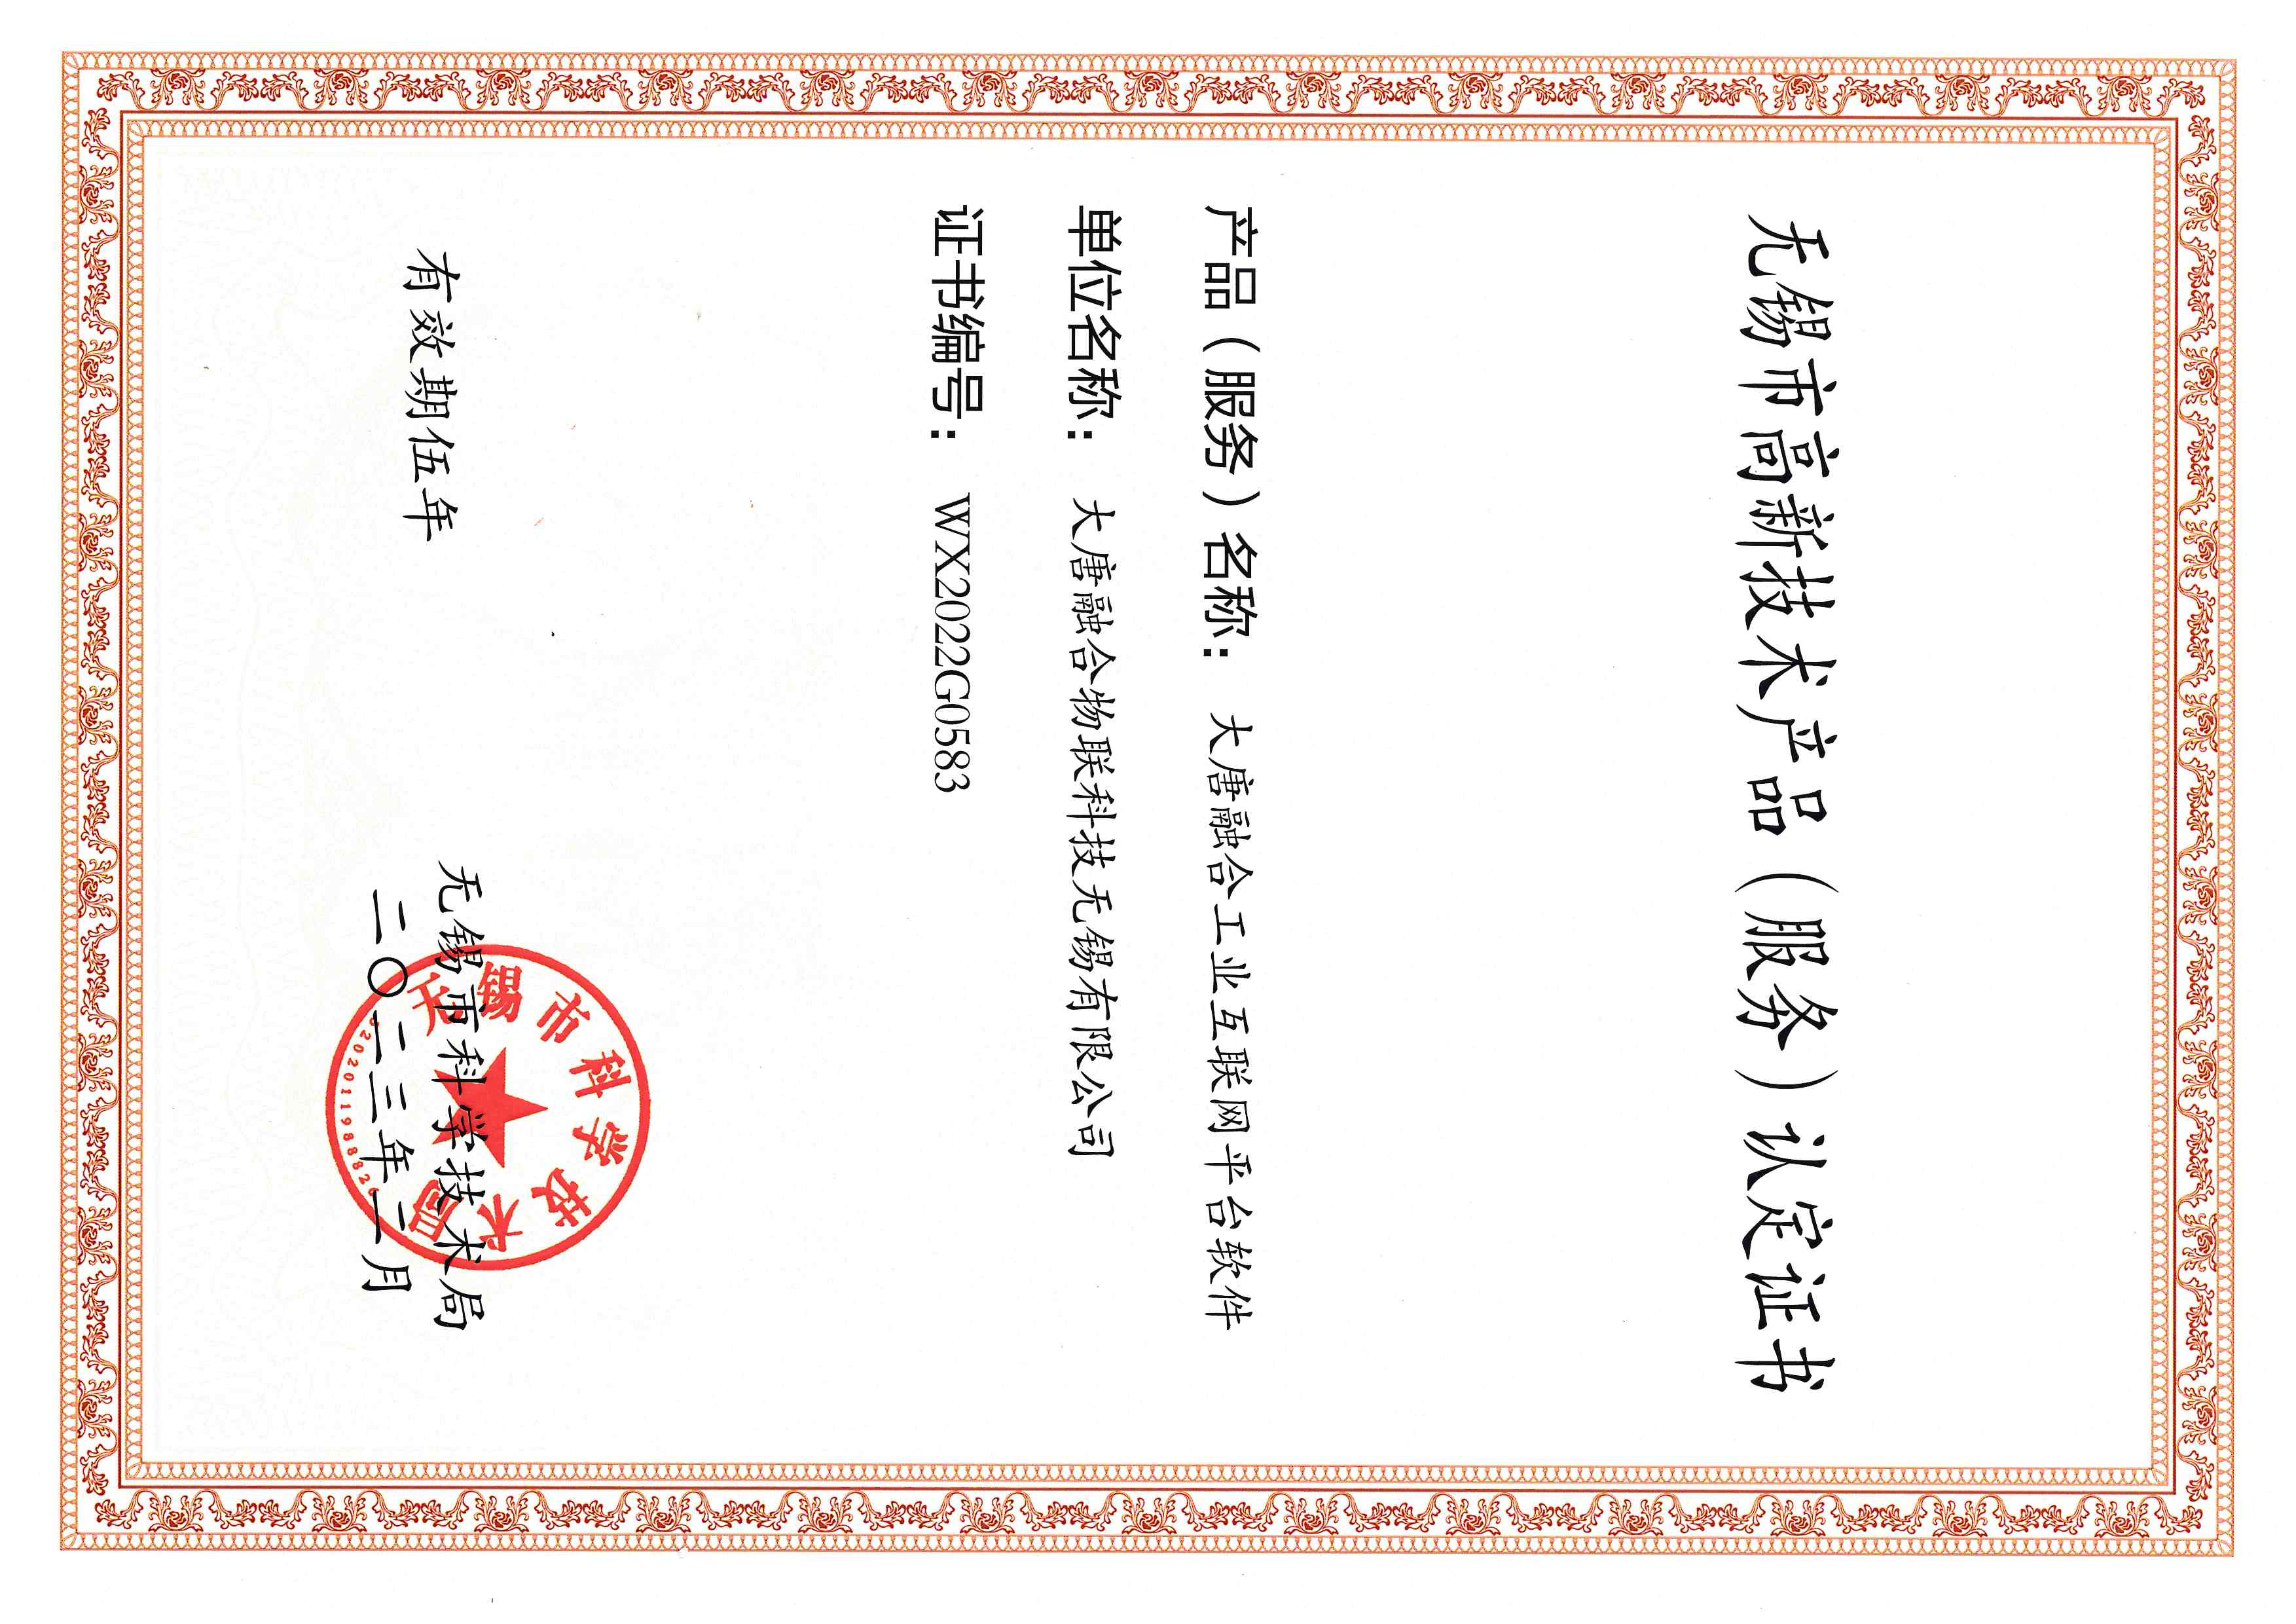 无锡市高新技术产品（服务）认定证书
产品（服务）名称：大唐融合工业互联网平台软件
单位名称：大唐融合物联科技无锡有限公司
证书编号：WX2022G0583
有效期伍年
无锡市科学技术局
二〇二三年二月
无锡市科学技术局